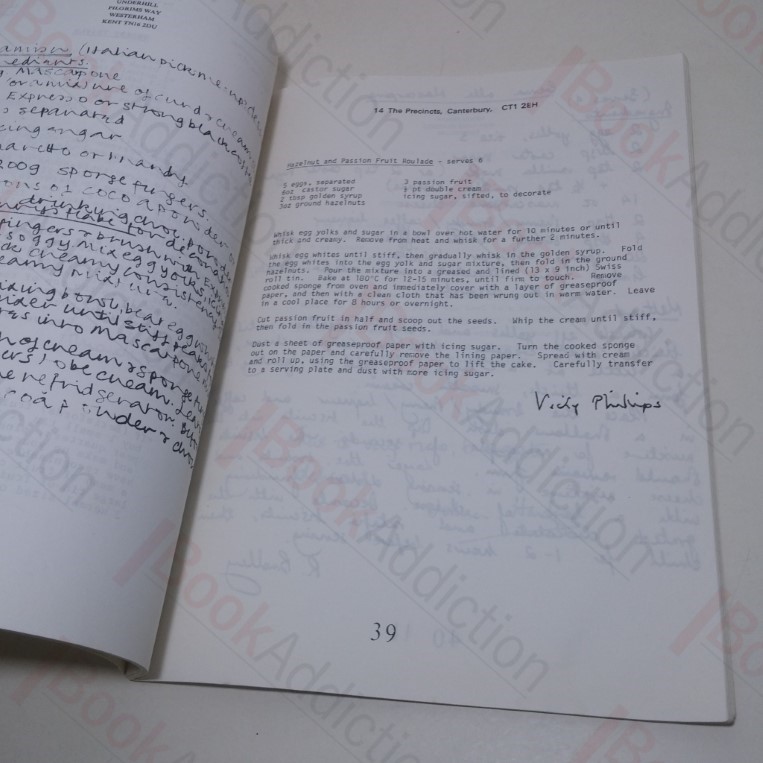 UNDERHILL
PILGRIMS WAY
WESTERHAM
KENT TN16 2DU
(Italian pick-me-up
Mascapone
or a mixture of curd & cream
Expresso or strong black coffee
separated
sugar
or brandy
200g sponge fingers.
cocoa powder or
drinking choc. powder
fingers & brush with
soggy. Mix egg yolks,
creamy consistency
bowl, beat egg
until stiff
into Mascapone
of cream & sponge
to be cream.
refridgerator.
14 The Precincts, Canterbury, CT1 2EH
Hazelnut and Passion Fruit Roulade - serves 8
5 eggs, separated
6oz castor sugar
2 tbsp golden syrup
3oz ground hazelnuts
3 passion fruit
½ pt double cream
icing sugar, sifted, to decorate
Whisk egg yolks and sugar in a bowl over hot water for 10 minutes or until
thick and creamy. Remove from heat and whisk for a further 2 minutes.
Whisk egg whites until stiff, then gradually whisk in the golden syrup. Fold
the egg whites into the egg yolk and sugar mixture, then fold in the ground
hazelnuts. Pour the mixture into a greased and lined (13 x 9 inch) Swiss
roll tin. Bake at 100°C for 12-15 minutes, until firm to touch. Remove
cooked sponge from oven and immediately cover with a layer of greaseproof
paper, and then with a clean cloth that has been wrung out in warm water. Leave
in a cool place for 8 hours or overnight.
Cut passion fruit in half and scoop out the seeds. Whip the cream until stiff,
then fold in the passion fruit seeds.
Dust a sheet of greaseproof paper with icing sugar. Turn the cooked sponge
out on the paper and carefully remove the lining paper. Spread with cream
and roll up, using the greaseproof paper to lift the cake. Carefully transfer
to a serving plate and dust with more icing sugar.
Vicky Phillips
39
BookAddiction